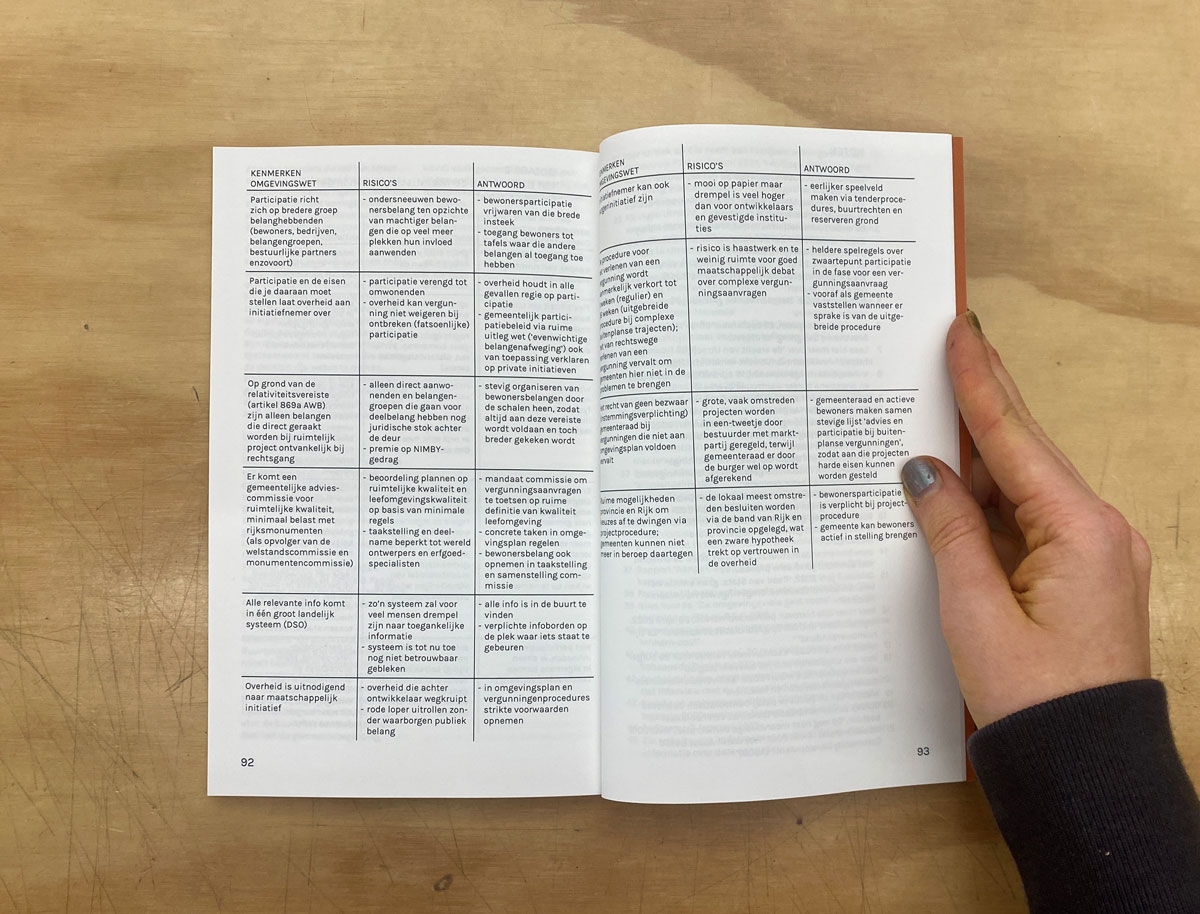 KENMERKEN
OMGEVINGSWET
RISICO'S
ANTWOORD
Participatie richt
zich op bredere groep
belanghebbenden
(bewoners, bedrijven,
belangengroepen,
bestuurlijke partners
enzovoort)
- ondersneeuwen bewo-
nersbelang ten opzichte
van machtiger belan-
gen die op veel meer
plekken hun invloed
aanwenden
- bewonersparticipatie
vrijwaren van die brede
insteek
- toegang bewoners tot
tafels waar die andere
belangen al toegang toe
hebben
Participatie en de eisen
die je daaraan moet
stellen laat overheid aan
initiatiefnemer over
- participatie verengd tot
omwonenden
- overheid kan vergun-
ning niet weigeren bij
ontbreken (fatsoenlijke)
participatie
- overheid houdt in alle
gevallen regie op parti-
cipatie
- gemeentelijk partici-
patiebeleid via ruime
uitleg wet ('evenwichtige
belangenafweging') ook
van toepassing verklaren
op private initiatieven
Op grond van de
relativiteitsvereiste
(artikel 869a AWB)
zijn alleen belangen
die direct geraakt
worden bij ruimtelijk
project ontvankelijk bij
rechtsgang
- alleen direct aanwo-
nenden en belangen-
groepen die gaan voor
deelbelang hebben nog
juridische stok achter
de deur
- premie op NIMBY-
gedrag
- stevig organiseren van
bewonersbelangen door
de schalen heen, zodat
altijd aan deze vereiste
wordt voldaan en toch
breder gekeken wordt
Er komt een
gemeentelijke advies-
commissie voor
ruimtelijke kwaliteit,
minimaal belast met
rijksmonumenten
(als opvolger van de
welstandscommissie en
monumentencommissie)
- beoordeling plannen op
ruimtelijke kwaliteit en
leefomgevingskwaliteit
op basis van minimale
regels
- taakstelling en deel-
name beperkt tot wereld
ontwerpers en erfgoed-
specialisten
- mandaat commissie om
vergunningsaanvragen
te toetsen op ruime
definitie van kwaliteit
leefomgeving
- concrete taken in omge-
vingsplan regelen
- bewonersbelang ook
opnemen in taakstelling
en samenstelling com-
missie
Alle relevante info komt
in één groot landelijk
systeem (DSO)
- zo'n systeem zal voor
veel mensen drempel
zijn naar toegankelijke
informatie
- systeem is tot nu toe
nog niet betrouwbaar
gebleken
- alle info is in de buurt te
vinden
- verplichte infoborden op
de plek waar iets staat te
gebeuren
Overheid is uitnodigend
naar maatschappelijk
initiatief
- overheid die achter
ontwikkelaar wegkruipt
- rode loper uitrollen zon-
der waarborgen publiek
belang
- in omgevingsplan en
vergunningenprocedures
strikte voorwaarden
opnemen
92
RISICO'S
ANTWOORD
kan ook
zijn
- mooi op papier maar
drempel is veel hoger
dan voor ontwikkelaars
en gevestigde institu-
ties
- eerlijker speelveld
maken via tenderproce-
dures, buurtrechten en
reserveren grond
procedure voor
verlenen van een
vergunning wordt
verkort tot
weken (regulier) en
weken (uitgebreide
procedure bij complexe
trajecten);
van rechtswege
verlenen van een
vergunning vervalt om
gemeenten hier niet in de
problemen te brengen
- risico is haastwerk en te
weinig ruimte voor goed
maatschappelijk debat
over complexe vergun-
ningsaanvragen
- heldere spelregels over
zwaartepunt participatie
in de fase voor een ver-
gunningsaanvraag
- vooraf als gemeente
vaststellen wanneer er
sprake is van de uitge-
breide procedure
recht van geen bezwaar
gemeenteraad bij
vergunningen die niet aan
omgevingsplan voldoen
vervalt
- grote, vaak omstreden
projecten worden
in een-tweetje door
bestuurder met markt-
partij geregeld, terwijl
gemeenteraad er door
de burger wel op wordt
afgerekend
- gemeenteraad en actieve
bewoners maken samen
stevige lijst 'advies en
participatie bij buiten-
planse vergunningen',
zodat aan die projecten
harde eisen kunnen
worden gesteld
Ruime mogelijkheden
provincie en Rijk om
keuzes af te dwingen via
projectprocedure;
gemeenten kunnen niet
meer in beroep daartegen
- de lokaal meest omstre-
den besluiten worden
via de band van Rijk en
provincie opgelegd, wat
een zware hypotheek
trekt op vertrouwen in
de overheid
- bewonersparticipatie
is verplicht bij project-
procedure
- gemeente kan bewoners
actief in stelling brengen
93